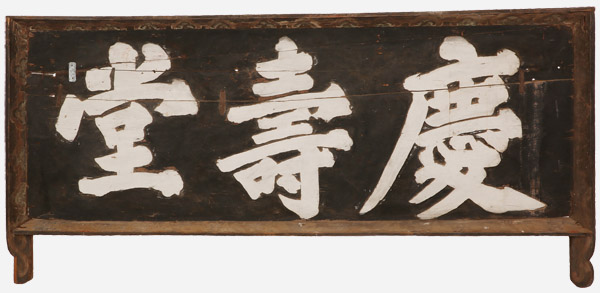 慶壽堂